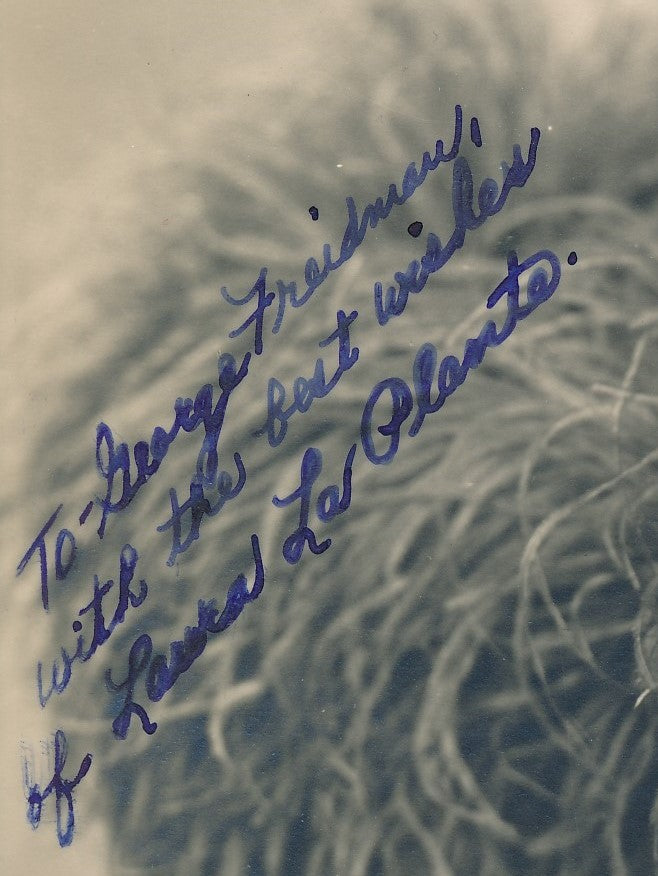 To - George Freidman,
with the best wishes
of Laura La Plante.